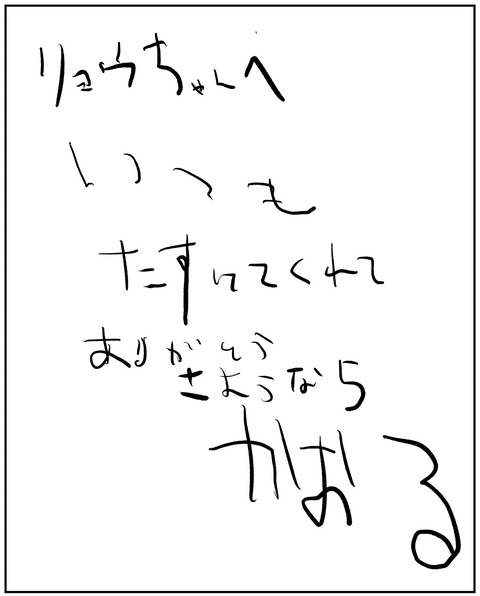 リョウちゃんへ
いつも
たすけてくれて
ありがとう
さようなら
かおる